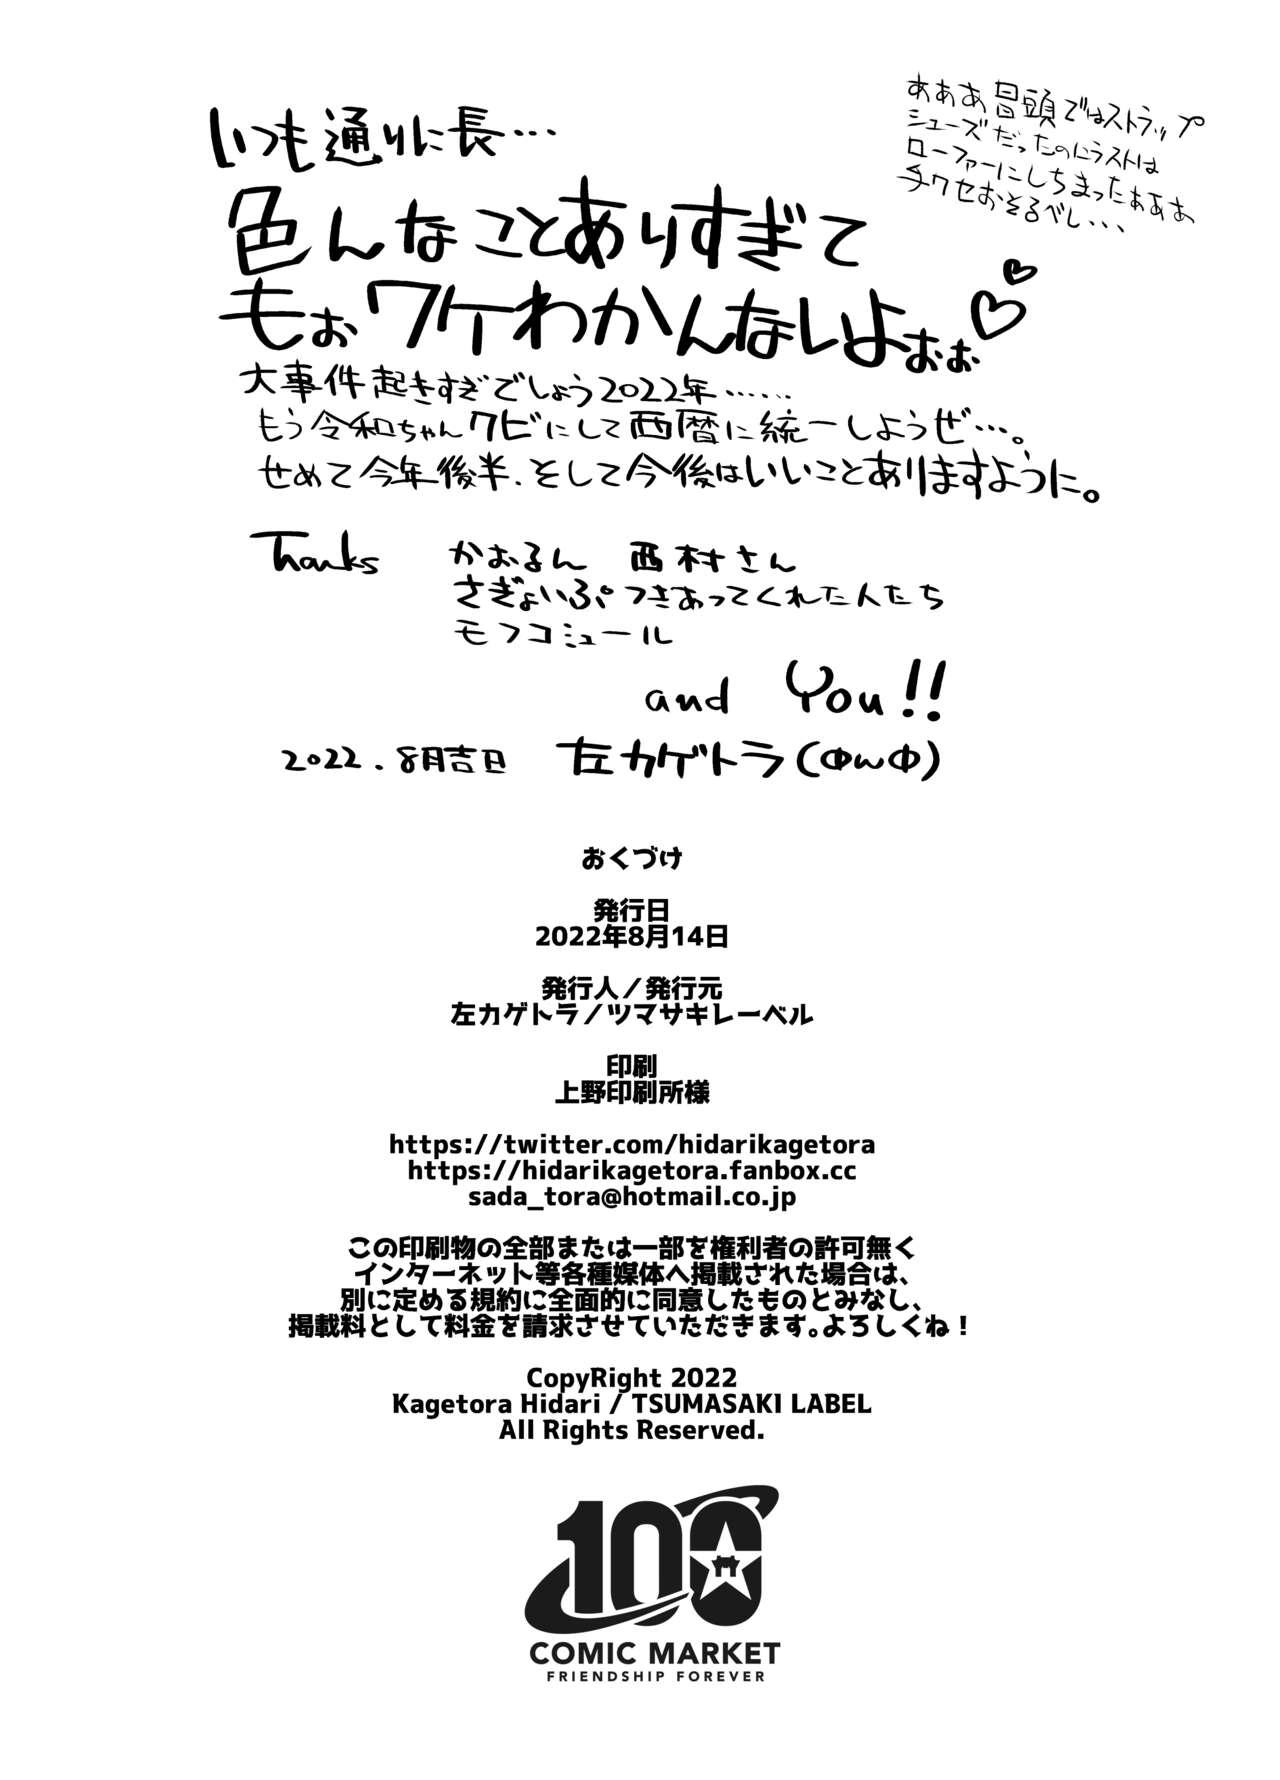 いつも通りに長…
あああ冒頭ではストラップ
シューズだったのにラストは
ローファーにしちまったぁああ
手クセおそるべし…
色んなことありすぎて
もぉワケわかんないよぉぉ♡♡
大事件起きすぎでしょう2022年……
もう令和ちゃんクビにして西暦に統一しようぜ…。
せめて今年後半、そして今後はいいことありますように。
Thanks かおるん 西村さん
さぎょいぷつきあってくれた人たち
モフコミュール
and You!!
2022.8月吉日 左カゲトラ(ΦωΦ)
おくづけ
発行日
2022年8月14日
発行人／発行元
左カゲトラ／ツマサキレーベル
印刷
上野印刷所様
https://twitter.com/hidarikagetora
https://hidarikagetora.fanbox.cc
sada_tora@hotmail.co.jp
この印刷物の全部または一部を権利者の許可無く
インターネット等各種媒体へ掲載された場合は、
別に定める規約に全面的に同意したものとみなし、
掲載料として料金を請求させていただきます。よろしくね！
CopyRight 2022
Kagetora Hidari / TSUMASAKI LABEL
All Rights Reserved.
100
COMIC MARKET
FRIENDSHIP FOREVER